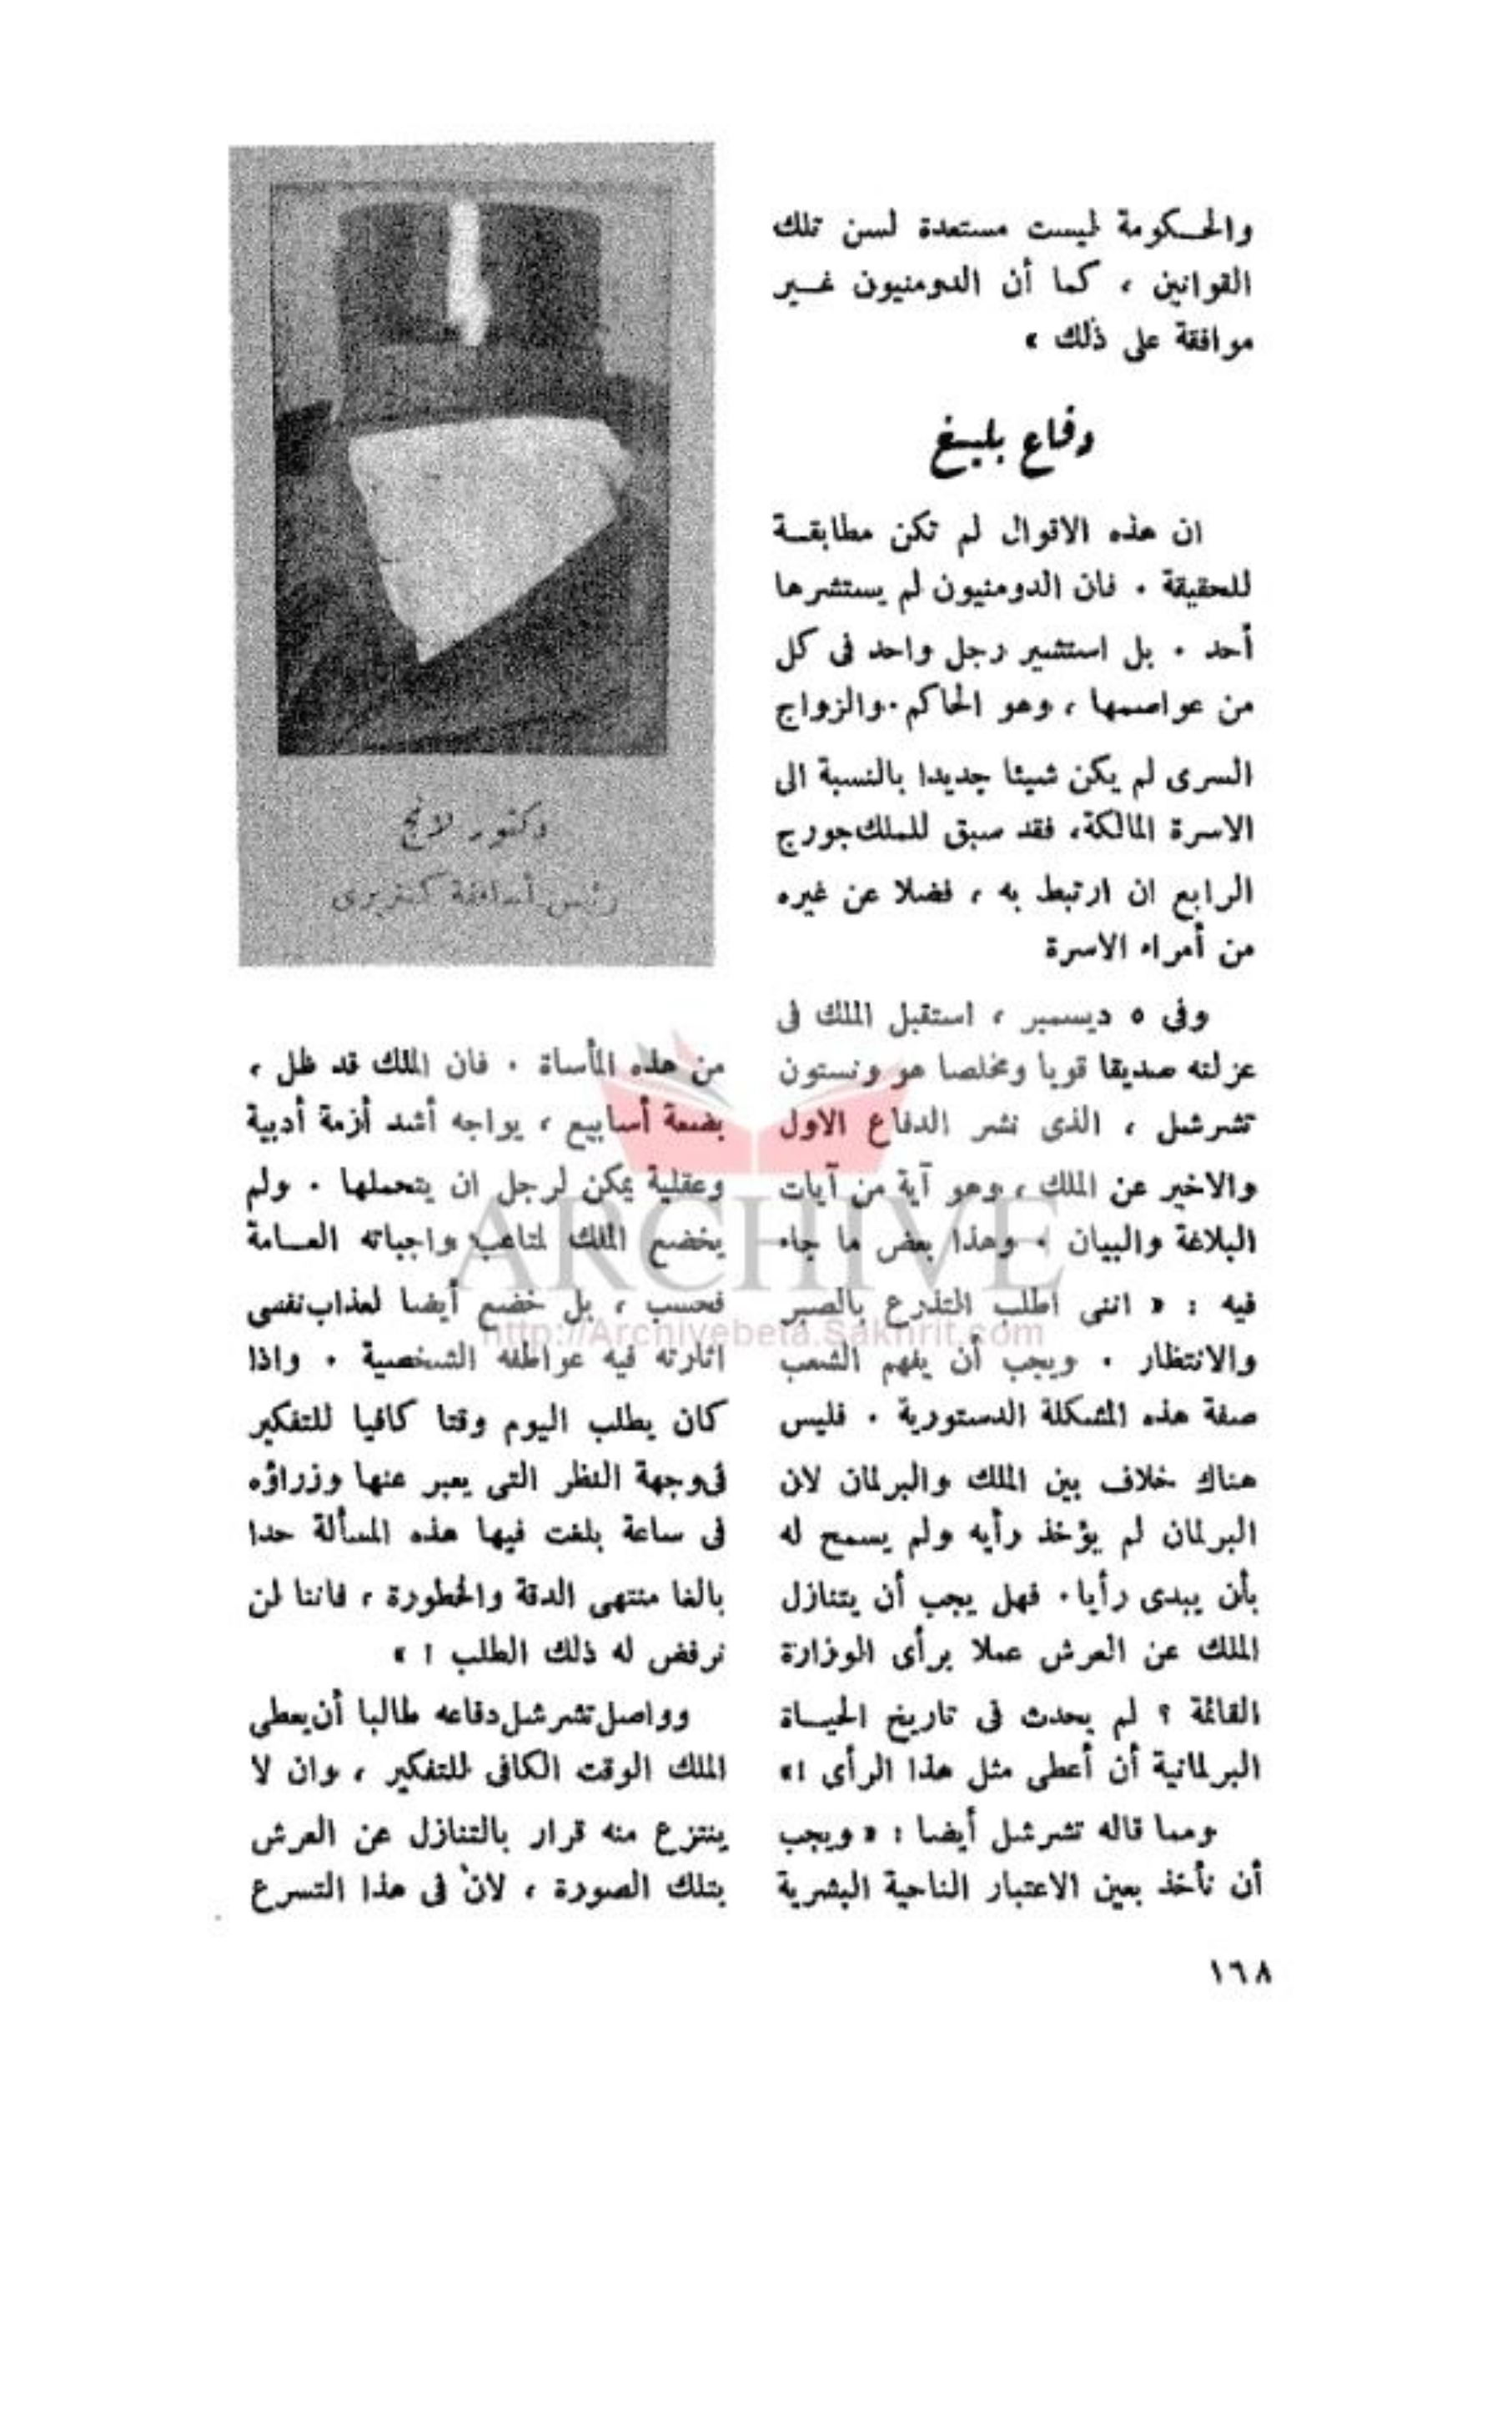 والحكومة ليست مستعدة لسن تلك
القوانين ، كما أن الدومنيون غير
موافقة على ذلك »
دفاع بليغ
ان هذه الاقوال لم تكن مطابقة
للحقيقة . فان الدومنيون لم يستشرها
أحد . بل استشير رجل واحد فى كل
من عواصمها ، وهو الحاكم . والزواج
السرى لم يكن شيئا جديدا بالنسبة الى
الاسرة المالكة ، فقد سبق للملك جورج
الرابع ان ارتبط به ، فضلا عن غيره
من أمراء الاسرة
وفى ٥ ديسمبر ، استقبل الملك فى
عزلته صديقا قويا ومخلصا هو ونستون
تشرشل ، الذى نشر الدفاع الاول
والاخير عن الملك ، وهو آية من آيات
البلاغة والبيان . وهذا بعض ما جاء
فيه : « اننى اطلب التذرع بالصبر
والانتظار . ويجب أن يفهم الشعب
صفة هذه المشكلة الدستورية . فليس
هناك خلاف بين الملك والبرلمان لان
البرلمان لم يؤخذ رأيه ولم يسمح له
بأن يبدى رأيا . فهل يجب أن يتنازل
الملك عن العرش عملا برأى الوزارة
القائمة ؟ لم يحدث فى تاريخ الحياة
البرلمانية أن أعطى مثل هذا الرأى !»
ومما قاله تشرشل أيضا : « ويجب
أن نأخذ بعين الاعتبار الناحية البشرية
دكتور لانج
رئيس أساقفة كنتربرى
من هذه المأساة . فان الملك قد ظل ،
بضعة أسابيع ، يواجه أشد أزمة أدبية
وعقلية يمكن لرجل ان يتحملها . ولم
يخضع الملك لمتاعب واجباته العامة
فحسب ، بل خضع أيضا لعذاب نفسى
اثارته فيه عواطفه الشخصية . واذا
كان يطلب اليوم وقتا كافيا للتفكير
فى وجهة النظر التى يعبر عنها وزراؤه
فى ساعة بلغت فيها هذه المسألة حدا
بالغا منتهى الدقة والخطورة ، فاننا لن
نرفض له ذلك الطلب ! »
وواصل تشرشل دفاعه طالبا أن يعطى
الملك الوقت الكافى للتفكير ، وان لا
ينتزع منه قرار بالتنازل عن العرش
بتلك الصورة ، لان فى هذا التسرع
١٦٨
ARCHIVE
http://Archivebeta.Sakhrit.com